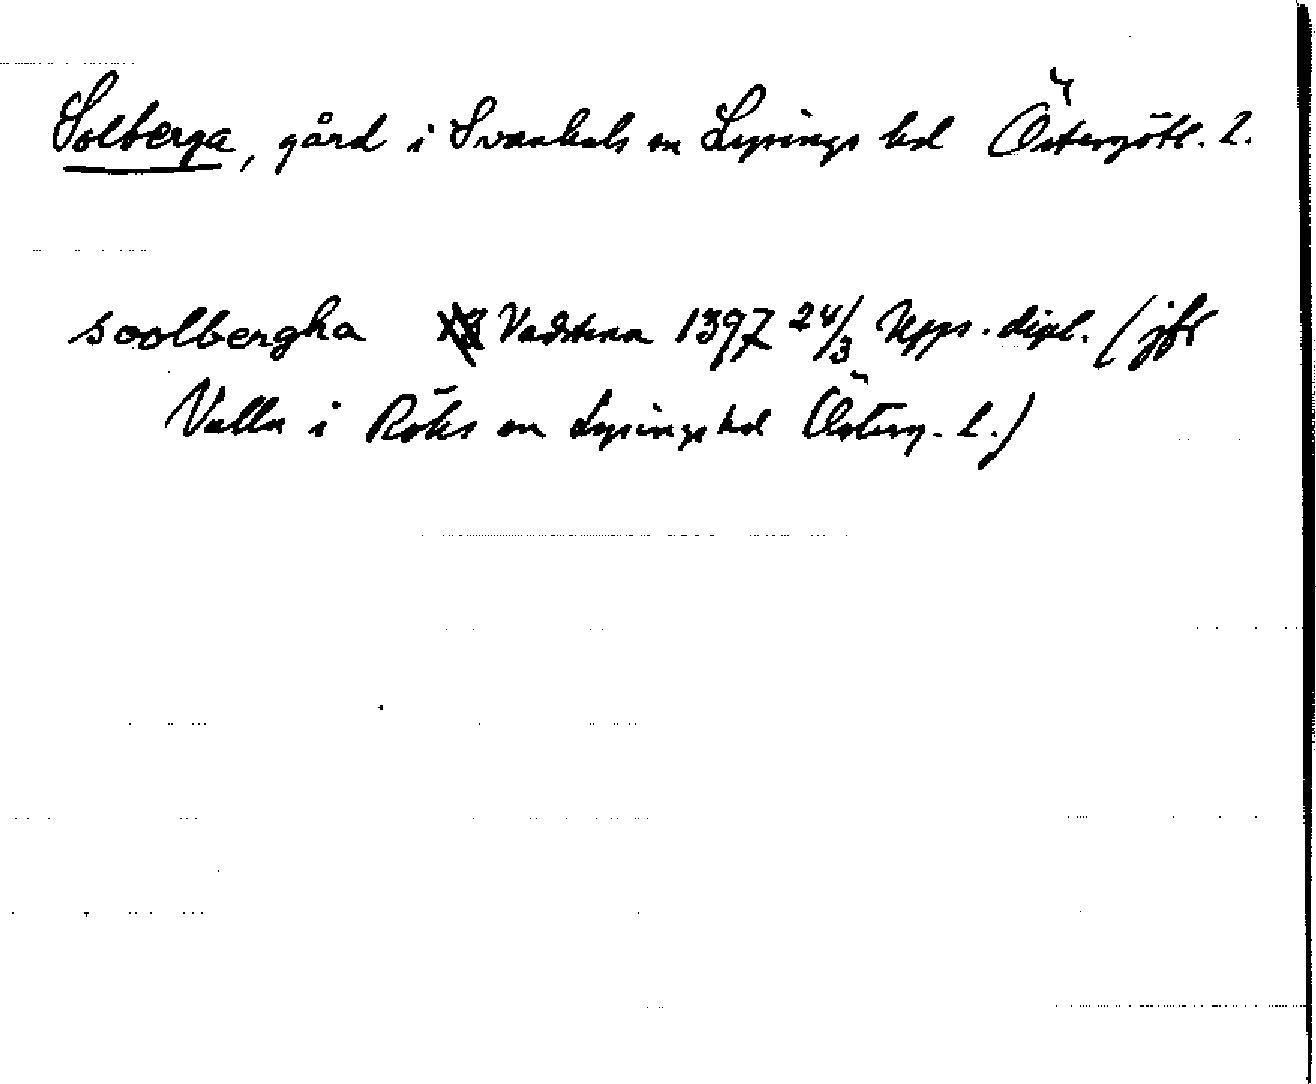 Solberga, gård i Svanhals sn Lysings hd Östergötl. l.
soolbergha Vadstena 1397 24/3 Upps. dipl. (jfr
Valla i Röks sn Lysings hd Österg. l.)